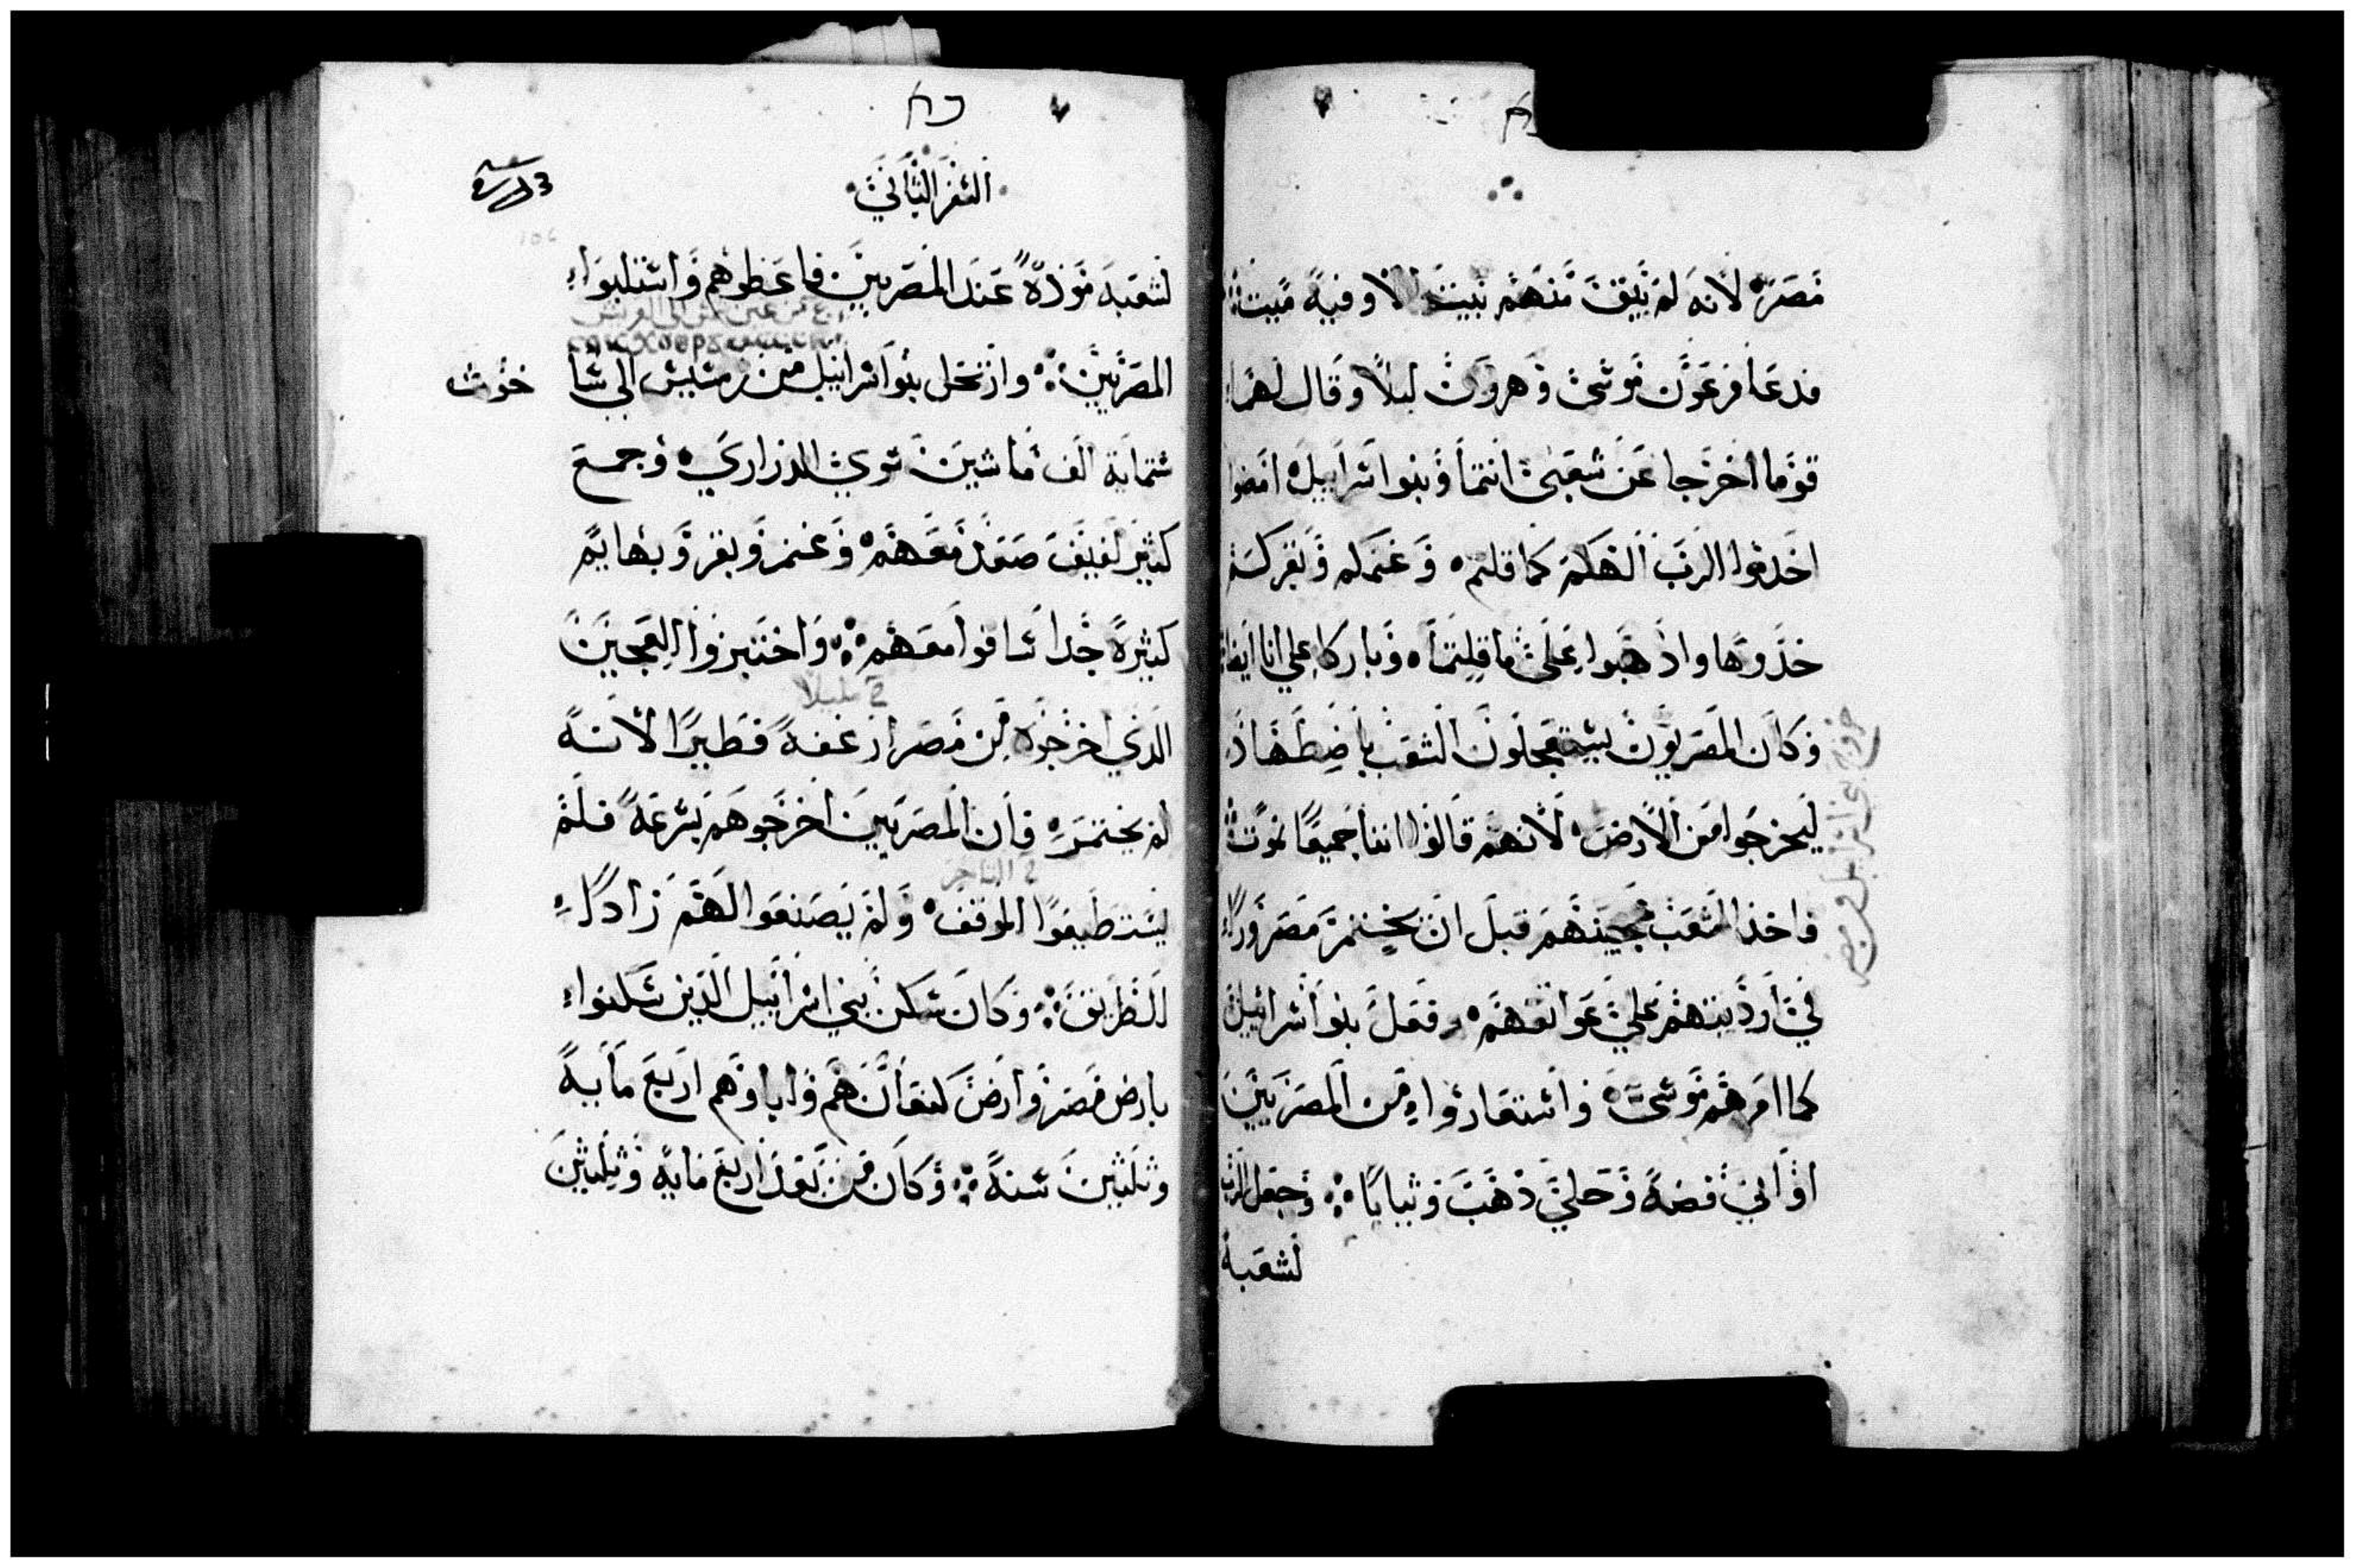 مصر لانه لم يبق منهم بيت الا وفيه ميت
فدعا فرعون موسى وهرون ليلا وقال لهما
قوما اخرجا عن شعبى انتما وبنوا اسراييل امضوا
اخدموا الرب الهكم كما قلتم وغنمكم وبقركم
خذوها واذهبوا على ما قلتما وباركا علي انا ايضا
وكان المصريون يستعجلون الشعب باضطهاد
ليخرجوا من الارض لانهم قالوا اننا جميعا نموت
فاخذ الشعب عجينهم قبل ان يختمر مصرورا
في ارديتهم علي عواتقهم وفعل بنوا اسراييل
كما امرهم موسى واستعاروا من المصريين
اواني فضة وحلي ذهب وثيابا وجعل الرب
لشعبة
السفر الثاني
لشعبه مودة عند المصريين فاعطوهم واستلبوا
المصريين وارتحل بنوا اسراييل من رمسيس الي سا
خوت
ستماية الف ماشين سوي الذراري وجمع
كثير لفيف صعد معهم وغنم وبقر وبهايم
كثيرة جدا ساقوا معهم واختبزوا العجين
الذي اخرجوه من مصر ارغفة فطيرا لانه
لم يختمر فان المصريين اخرجوهم بسرعة فلم
يستطيعوا الموقف ولم يصنعوا لهم زادا
للطريق وكان سكن بني اسراييل الذين سكنوا
بارض مصر وارض كنعان هم واباوهم اربع ماية
وثلثين سنة وكان من بعد اربع ماية وثلثين